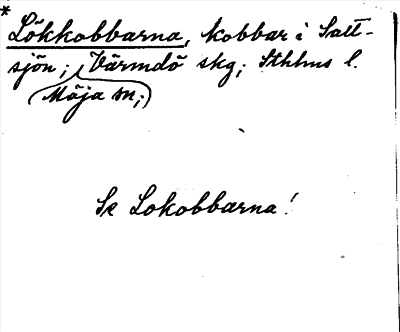 *
Lökkobbarna, kobbar i Salt-
sjön; Värmdö skg; Sthlms l.
(Möja sn;)
Se Lokobbarna!